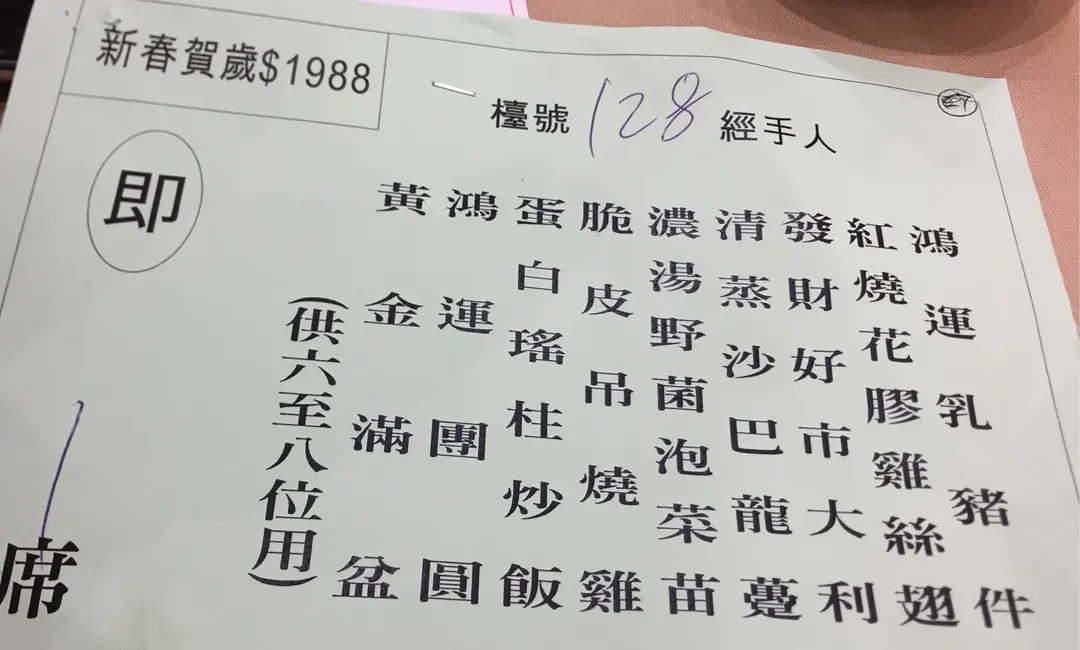 新春賀歲$1988
檯號 128 經手人
即
鴻運乳豬件
紅燒花膠雞絲翅
發財好市大利
清蒸沙巴龍躉
濃湯野菌泡菜苗
脆皮吊燒雞
蛋白瑤柱炒飯
鴻運團圓
黃金滿盆
(供六至八位用)
席